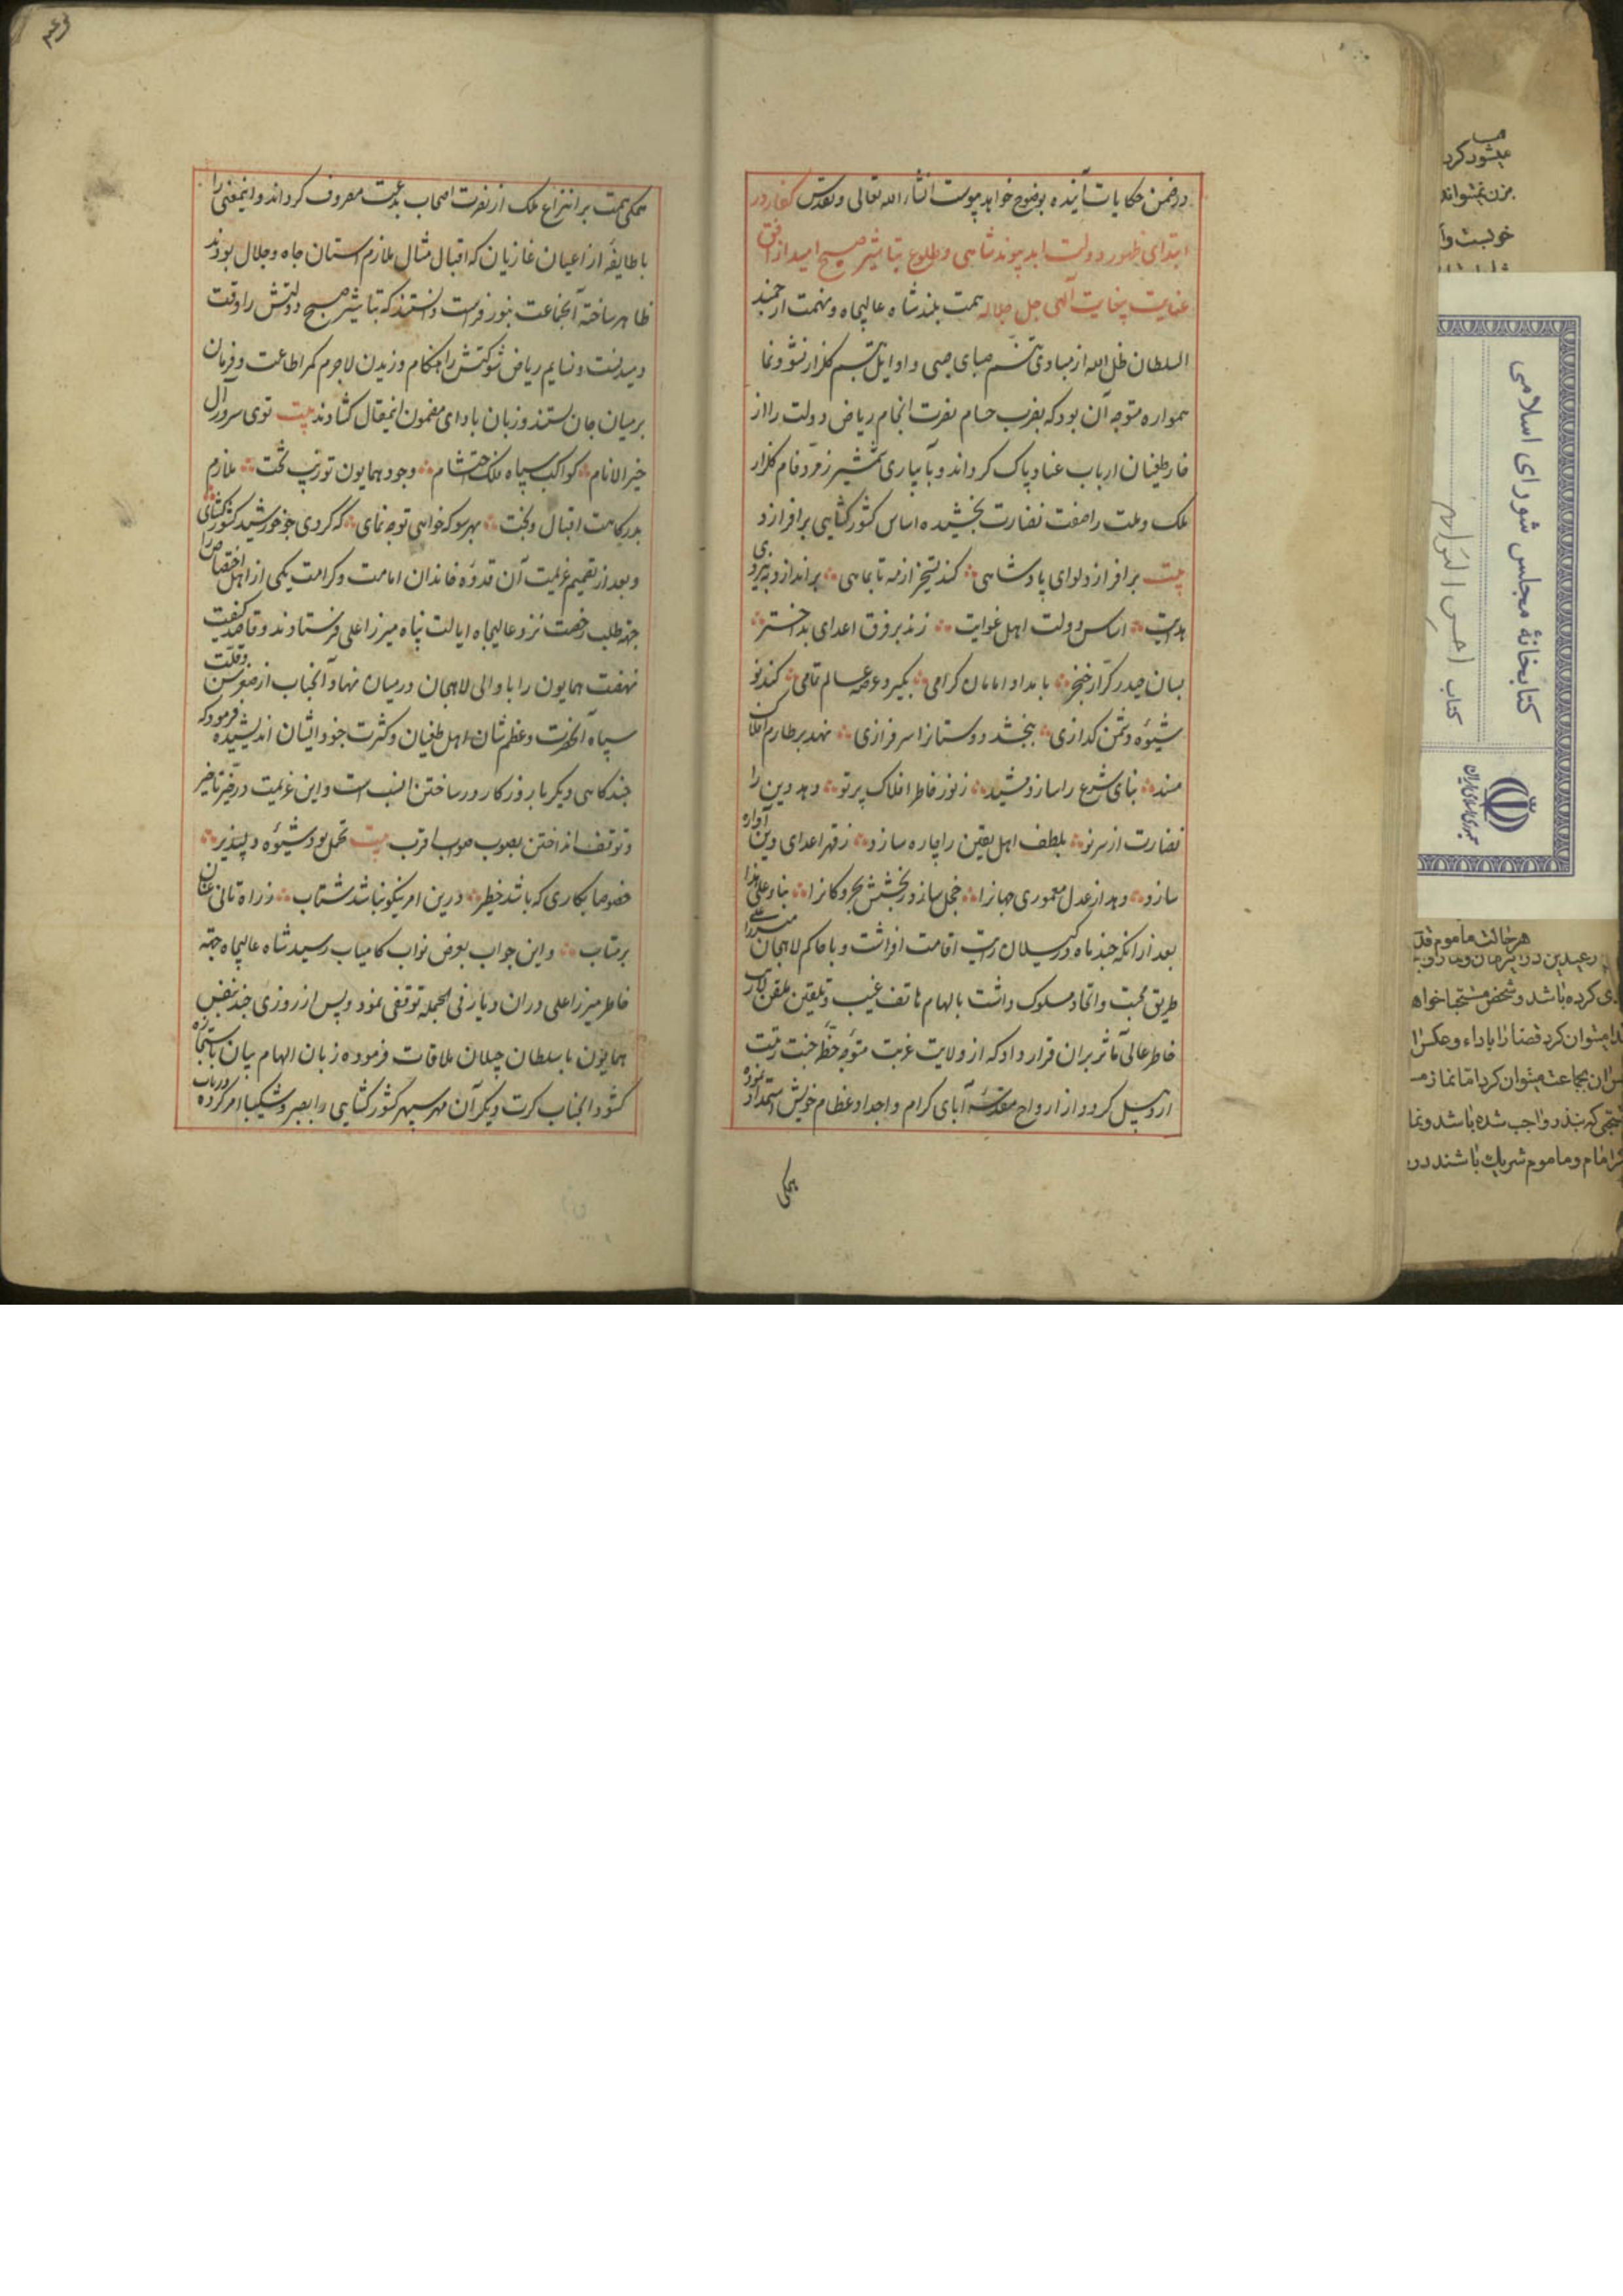 در ضمن حکایات آینده بوضوح خواهد پیوست انشاء الله تعالی و تقدس گفتار در
ابتدای ظهور دولت ابد پیوند شاهی و طلوع تباشیر صبح امید از افق
عنایت بیغایت آلهی جل جلاله همت بلند شاه عالیجاه و نهمت ارجمند
السلطان ظل الله از مبادی تنسم صبای صبی و اوایل تبسم گلزار نشو و نما
همواره متوجه آن بود که بضرب حسام نصرت انجام ریاض دولت را از
خار طغیان ارباب عناد پاک گرداند و بآبیاری شمشیر زمرد فام گلزار
ملک و ملت را صفت نضارت بخشیده اساس کشور کشایی برافرازد
بیت برافرازد لوای پادشاهی کند تسخیر از مه تا بماهی براندازد به نیروی
هدایت اساس دولت اهل غوایت زند بر فرق اعدای بداختر
بسان حیدر کرار خنجر بامداد امامان گرامی بگیرد عرصه عالم تمامی کند نو
شیوه دشمن گدازی ببخشد دوستانرا سرفرازی نهد بر طارم افلاک
مسند بنای شرع را سازد مشید ز نور خاطر افلاک پرتو دهد دین را
نضارت از سر نو بلطف اهل یقین را چاره سازد ز قهر اعدای دین آواره
سازد دهد از عدل معموری جهانرا خجل سازد ز بخشش بحر و کانرا بناء علی هذا
بعد از آنکه چند گاه در گیلان رایت اقامت افراشت و با حاکم لاهجان میرزا علی
طریق محبت و اتحاد مسلوک داشت بالهام هاتف غیب و تلقین ملقن لاریب
خاطر عالی مآثر بران قرار داد که از ولایت غربت متوجه خطه جنت رتبت
اردبیل گردد و از ارواح مقدسه آبای کرام و اجداد عظام خویش استمداد نموده
همگی
همگی همت بر انتزاع ملک از تصرف اصحاب بدعت مصروف گرداند و اینمعنی را
با طایفه از اعیان غازیان که اقبال مثال ملازم آستان جاه و جلال بودند
ظاهر ساخته آنجماعت بنور فراست دانستند که تباشیر صبح دولتش را وقت
دمیدنست و نسایم ریاض شوکتش را هنگام وزیدن لاجرم کمر اطاعت و فرمان
بر میان جان بستند و زبان بادای مضمون اینمقال کشادند بیت توی سرور آل
خیر الانام کواکب سپاه ملک احتشام وجود همایون تو زیب تخت ملازم
بدرگاهت اقبال و بخت بهر سو که خواهی توجه نمای که گردی چو خورشید کشور کشای
و بعد از تصمیم عزیمت آن قدوه خاندان امامت و کرامت یکی از اهل اختصاص را
جهة طلب رخصت نزد عالیجاه ایالت پناه میرزا علی فرستادند و قاصد کیفیت
نهضت همایون را با والی لاهجان در میان نهاد آنجناب از صغر سن و قلت
سپاه آنحضرت و عظم شان اهل طغیان و کثرت جنود ایشان اندیشیده فرمود که
چند گاهی دیگر با روزگار در ساختن انسب است و این عزیمت در حیز تاخیر
و توقف انداختن بصوب صواب اقرب بیت تحمل بود شیوه دلپذیر
خصوصا بکاری که باشد خطیر درین امر نیکو نباشد شتاب ز راه تانی عنان
بر متاب و این جواب بعرض نواب کامیاب رسید شاه عالیجاه جهة
خاطر میرزا علی در ان دیار فی الجمله توقفی نمود و پس از روزی چند بنفس
همایون با سلطان جیلان ملاقات فرموده زبان الهام بیان باستجازه
کشود آنجناب کرت دیگر آن مهر سپهر کشور کشایی را بصبر و شکیبا امر کرده در باب
کتابخانهٔ مجلس شورای اسلامی
کتاب احسن التواریخ
جمهوری اسلامی ایران
میشود کرد